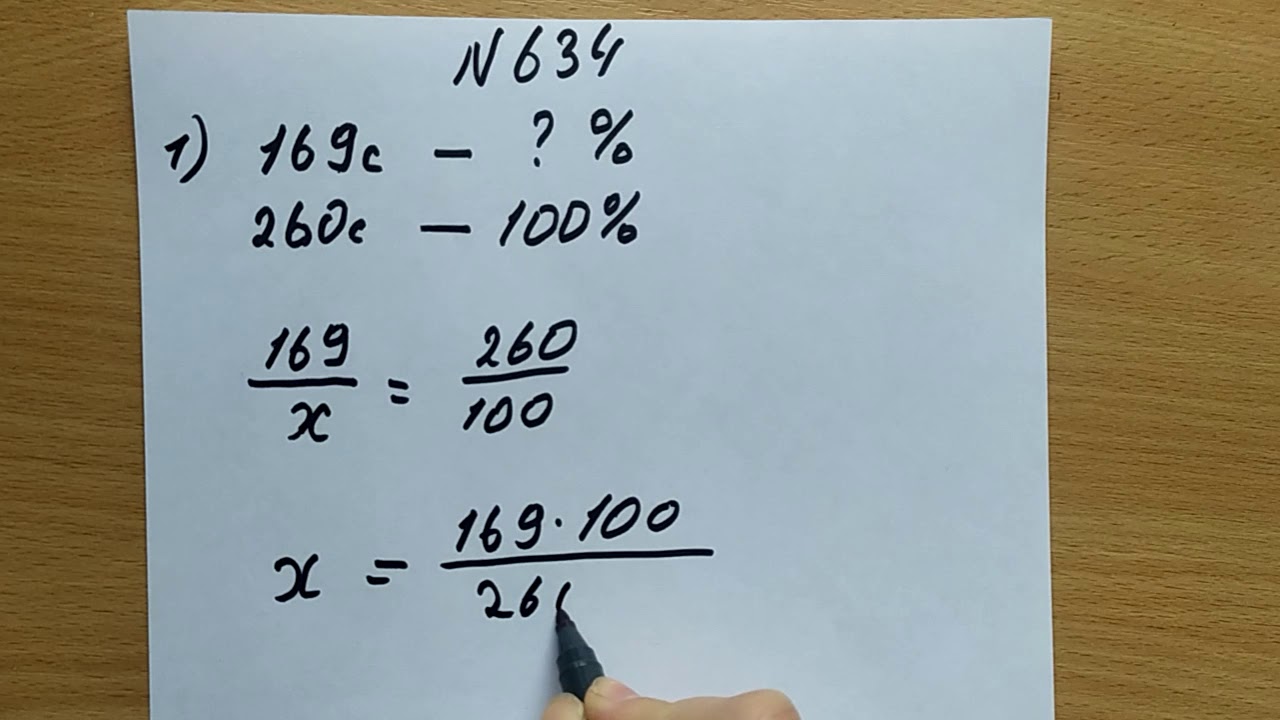 N 634
1) 169с – ? %
260с – 100%
169/x = 260/100
x = 169·100/26